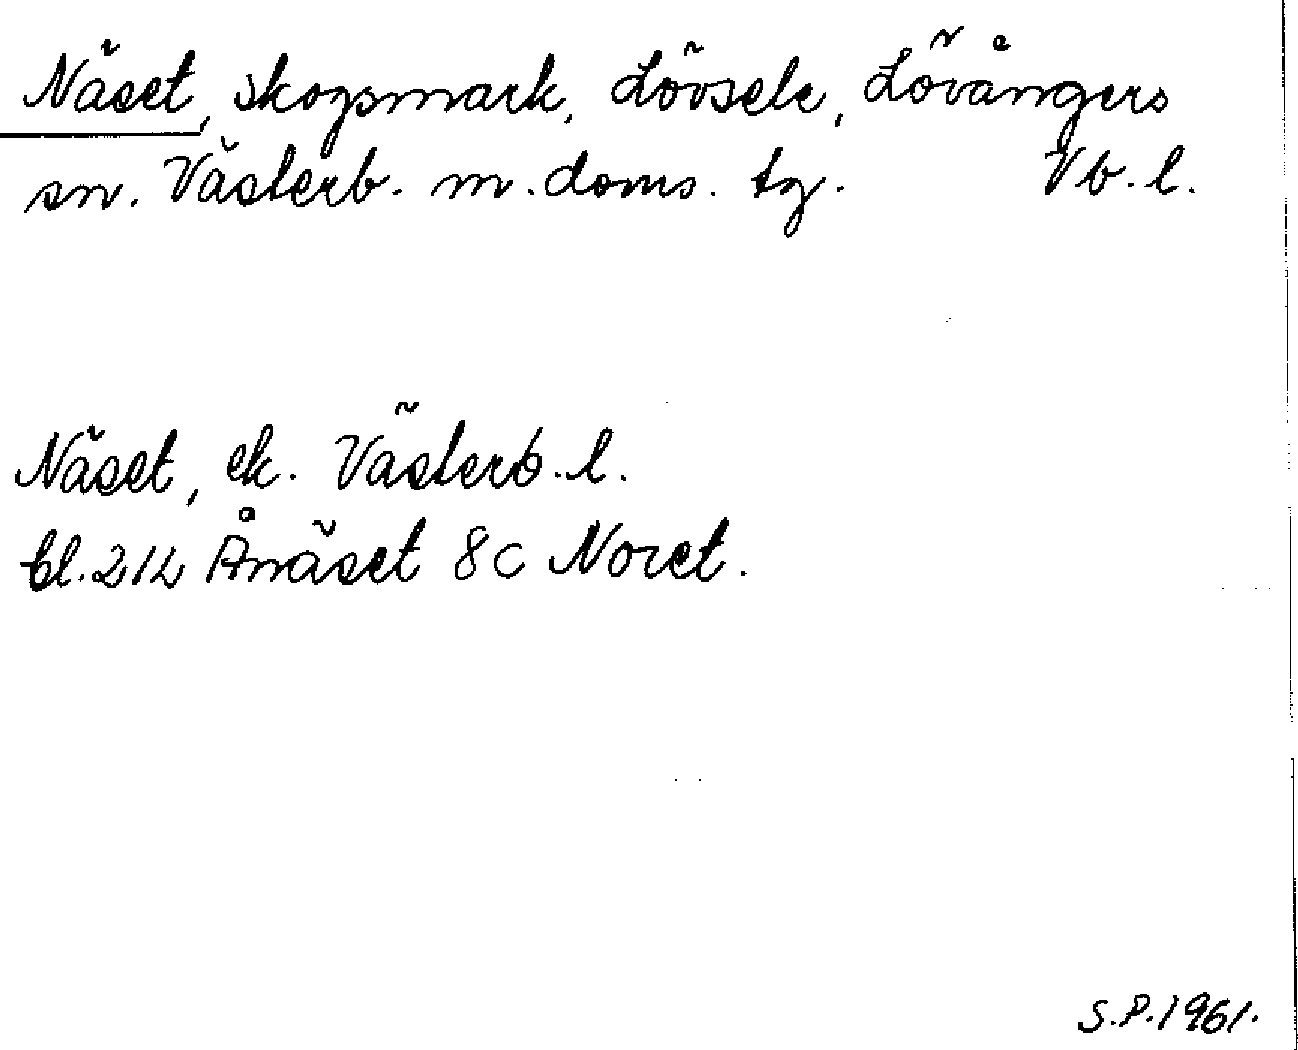 Näset, skogsmark, Lövsele, Lövångers
sn. Västerb. m. doms. tg. Vb. l.
Näset, ek. Västerb. l.
bl. 212 Ånäset 8c Noret.
S.P. 1961.